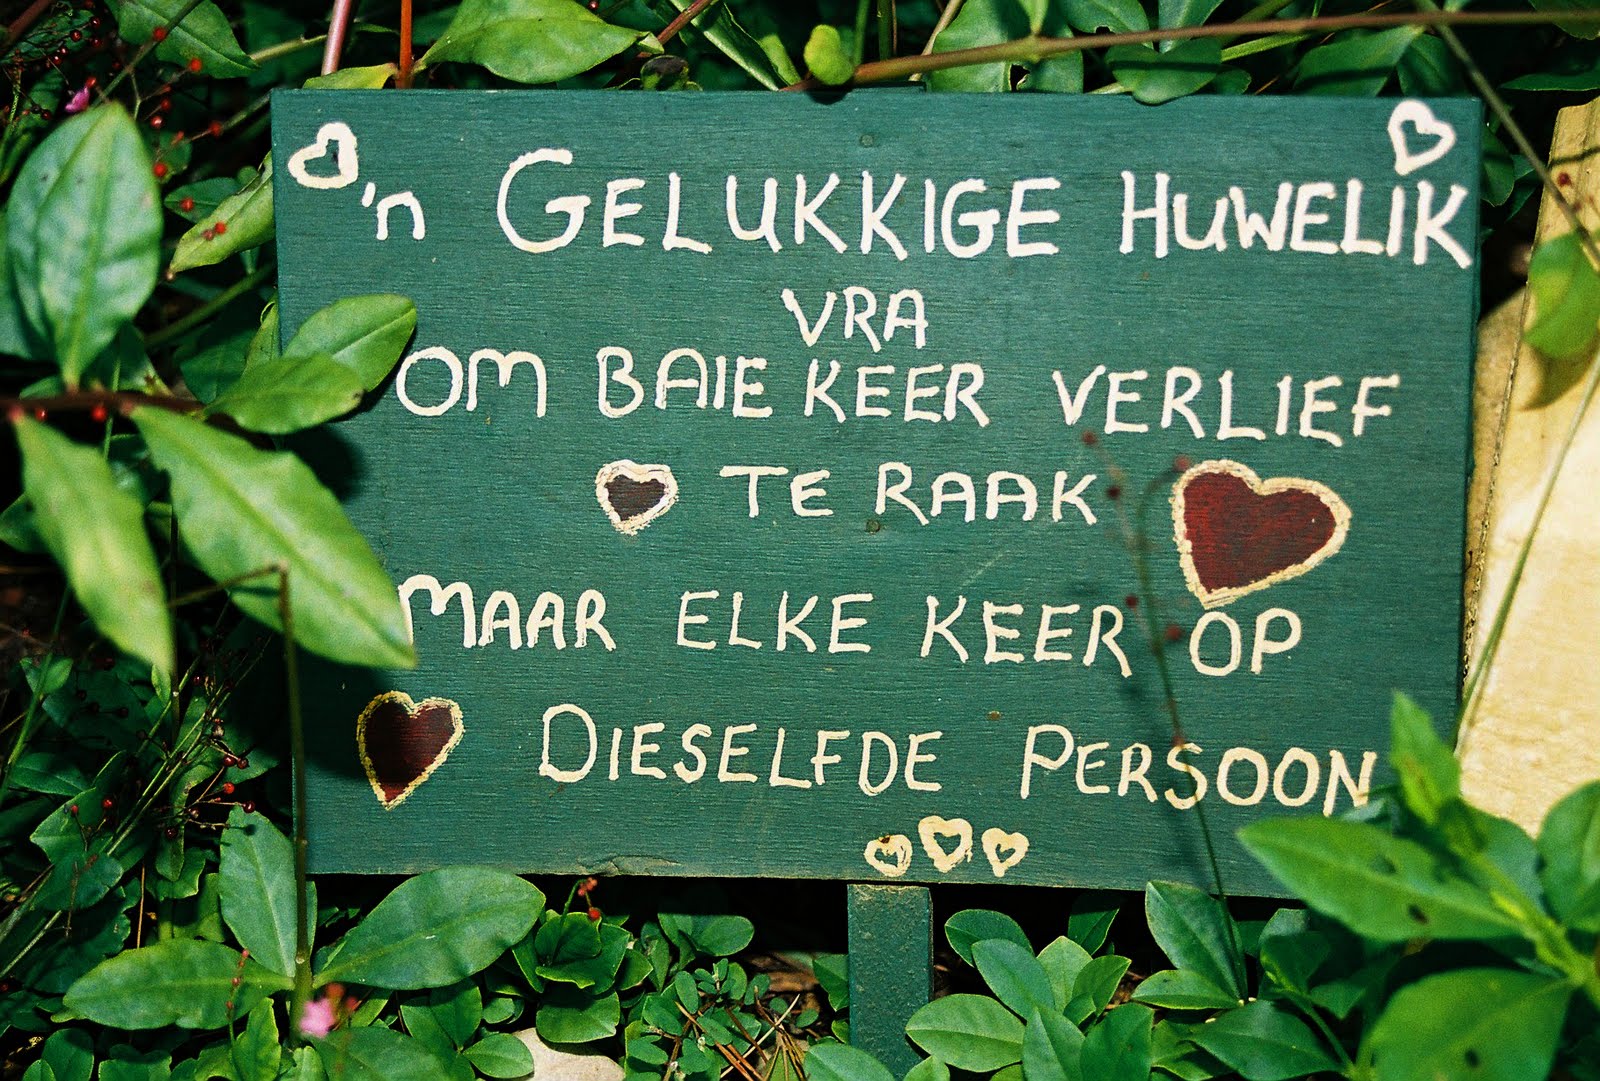 'n GELUKKIGE HUWELIK
VRA
OM BAIE KEER VERLIEF
TE RAAK
MAAR ELKE KEER OP
DIESELFDE PERSOON